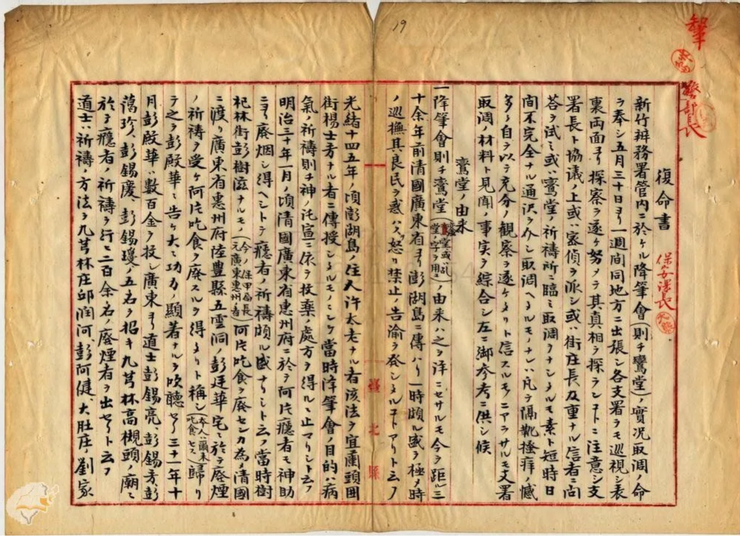 19
警部長
保安課長
復命書
新竹辨務署管内ニ於ケル降筆會(則チ鸞堂)ノ實況取調ノ命
ヲ奉シ五月三十日ヨリ一週間同地方ニ出張シ各支署ヲモ巡視シ表
裏両面ヨリ探察ヲ遂ケ努メテ其真相ヲ探ランコトニ注意シ支
署長ト協議ノ上或ハ密偵ヲ派シ或ハ街庄長及重ナル信者ニ問
答ヲ試ミ或ハ鸞堂ノ祈祷所ニ臨ミ取調ヲナシタルモ素ト短時日
間不完全ナル通訳ヲ介シ取調ヘタルモノナレハ凡テ隔靴掻痒ノ憾
多ク自ラ以テ充分ノ観察ヲ遂ケタリト信スルモノニアラサルモ支署
取調ノ材料ト見聞ノ事実ヲ綜合シ左ニ御参考ニ供シ候
鸞堂ノ由来
一降筆會則チ鸞堂ノ由来ハ之ヲ詳ニセサルモ今ヲ距ル三
十余年前清國廣東省ヨリ澎湖島ニ傳ハリ一時頗ル盛ヲ極メ時
ノ巡撫其良民ヲ惑ハスヲ怒リ禁止ノ告諭ヲ発シタルコトアリト云フ
光緒十四五年ノ頃澎湖島ノ住人許太老ナル者該法ヲ宜蘭頭囲
街楊士芳ナル者ニ傳授シタルモノニシテ當時降筆會ノ目的ハ病
氣ノ祈祷則チ神ノ託宣ニ依ヲ投薬ノ處方ヲ得ルニ止マリシト云フ
明治三十年一月ノ頃清國廣東省惠州府ニ於テ阿片癮者モ神助
ニヨリ廃烟シ得ヘシトテ癮者ノ祈祷頗ル盛ナリシト云フ當時樹
杞林街彭樹滋ナルモノ(今ノ保甲局長元廣東惠州ノ者)阿片吃食ヲ廃センカ為メ清國
ニ渡リ廣東省惠州府陸豊縣五雲洞ノ彭廷華宅ニ於テ廃煙
ノ祈祷ヲ受ケ阿片吃食ヲ廃スルヲ得タリト稱シ(本人ハ爾来吃食セス)歸リ
テ之ヲ彭殿華ニ告ケ大ニ功力ノ顯著ナルヲ吹聴セリ三十一年十
月彭殿華ハ数百金ヲ投シ廣東ヨリ道士彭錫亮、彭錫孝彭
藹珍、彭錫慶、彭錫瓊ノ五名ヲ招キ九芎林高梘頭ノ廟ニ
於テ癮者ノ祈祷ヲ行ヒ二百余名ノ廃煙者ヲ出セリト云フ
道士ハ祈祷ノ方法ヲ九芎林庄邱潤河、彭阿健、大肚庄ノ劉家
臺北縣